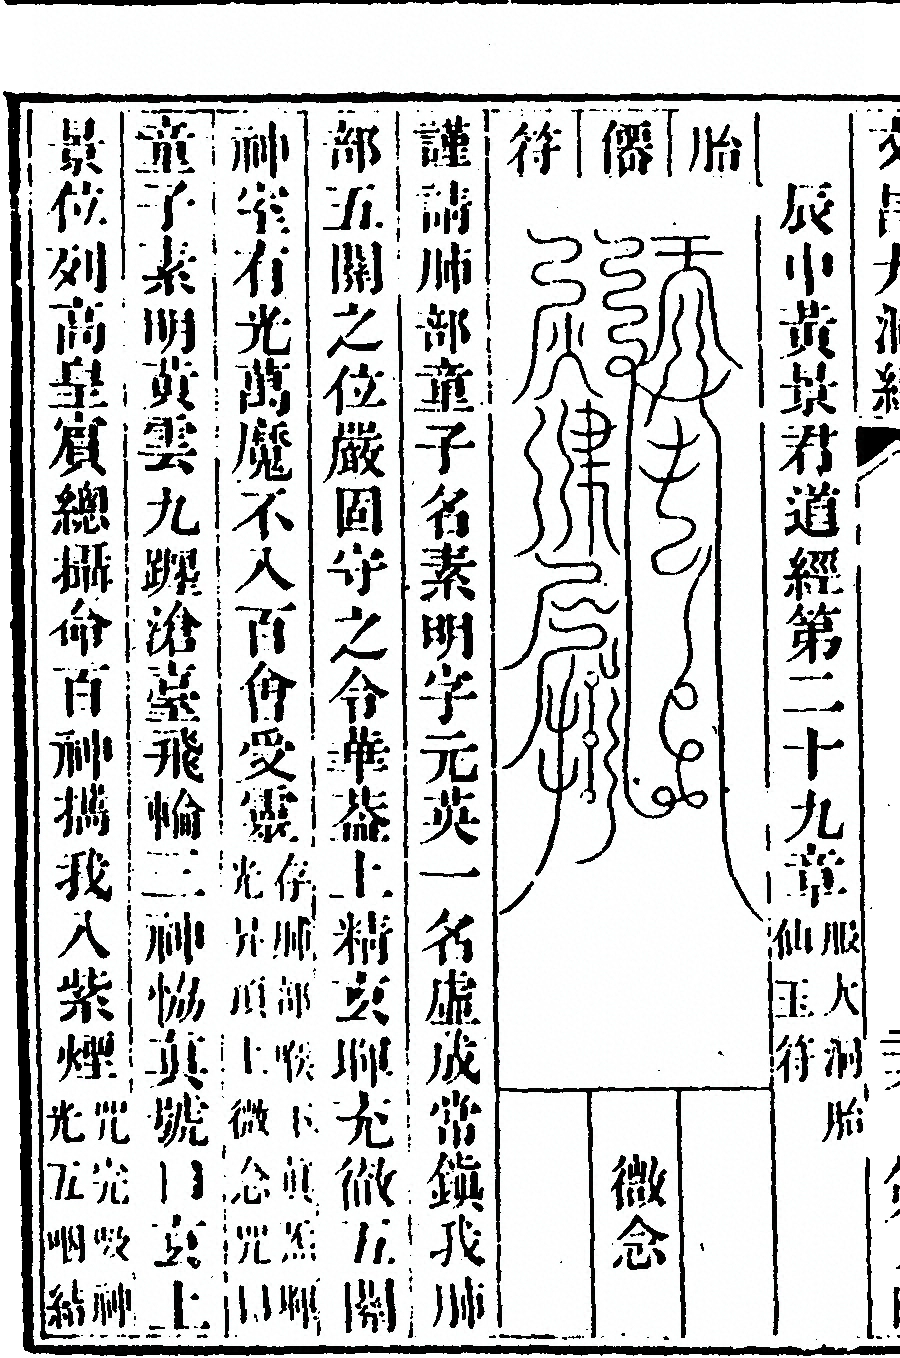 辰中黃景君道經第二十九章服大洞胎
仙玉符
胎僊符
微念
謹請肺部童子名素明字元英一名虛成常鎮我肺
部五關之位嚴固守之令華蓋上精玄暉充徹五關
神室有光萬魔不入百會受靈存肺部喉下真炁暉
光昇頂上微念咒曰
童子素明黃雲九躔滄臺飛輪三神恊真號曰玄上
景位列高皇賓總攝命百神攜我入紫煙咒完吸神
光五咽結